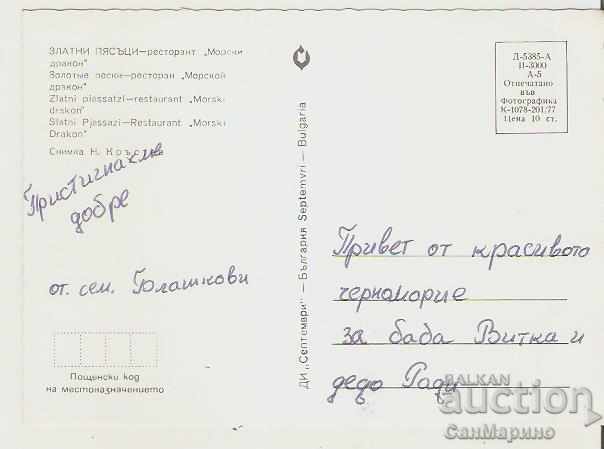 ЗЛАТНИ ПЯСЪЦИ—ресторант „Морски
дракон"
Золотые пески—ресторан „Морской
дракон"
Zlatni piassatzi—restaurant „Morski
drakon"
Slatni Pjassazi—Restaurant „Morski
Drakon"
Снимка Н. Кръс
Пристигнахме
добре
от. сем.
Пощенски код
на местоназначението
ДИ „Септември" — България Septemvri — Bulgaria
Д-5385-А
II-3000
А-5
Отпечатано
във
Фотографика
К-1078-201/77
Цена 10 ст.
Привет от красивото
черноморие
за баба Витка и
дедо Ради
BALKAN
auction
СанМарино